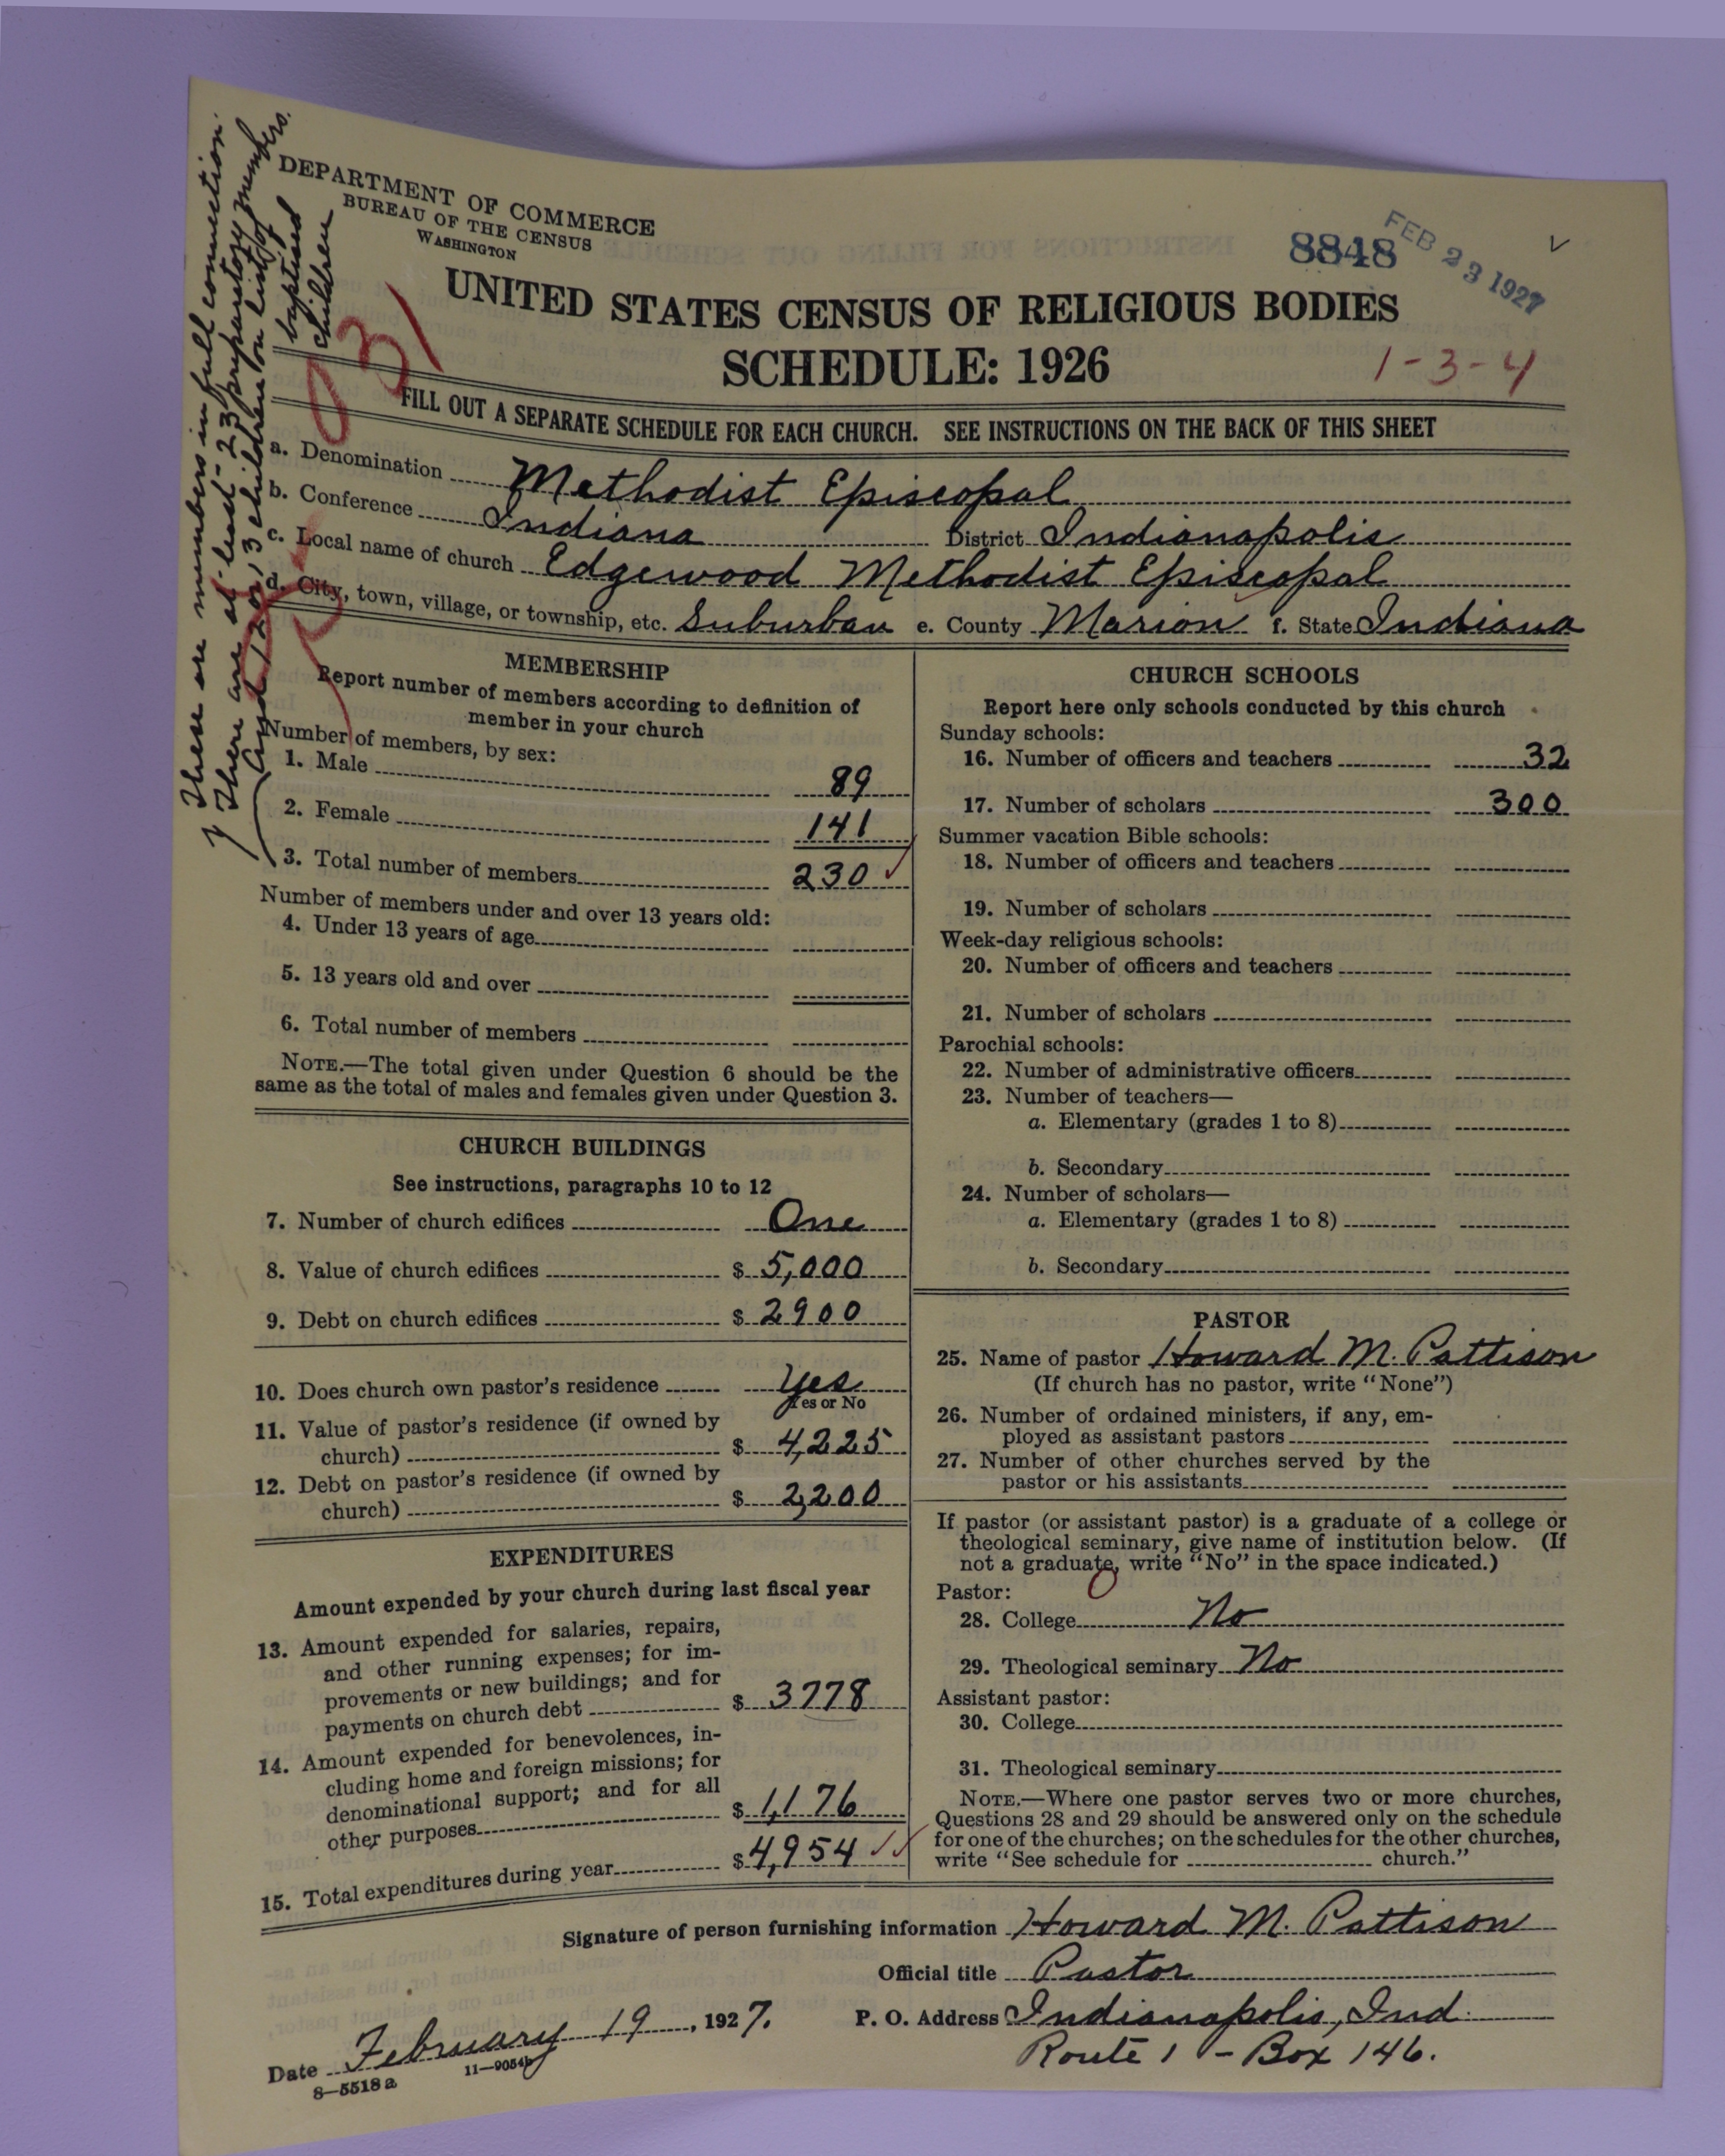 These are members in full connection.
There are at least 23 preparatory members.
And 12 or 13 children on list of
baptised
children
DEPARTMENT OF COMMERCE
BUREAU OF THE CENSUS
WASHINGTON
8848
FEB 23 1927
UNITED STATES CENSUS OF RELIGIOUS BODIES
SCHEDULE: 1926
1-3-4
031
FILL OUT A SEPARATE SCHEDULE FOR EACH CHURCH. SEE INSTRUCTIONS ON THE BACK OF THIS SHEET
a. Denomination Methodist Episcopal
b. Conference Indiana District Indianapolis
c. Local name of church Edgewood Methodist Episcopal
d. City, town, village, or township, etc. Suburban e. County Marion f. State Indiana
MEMBERSHIP
Report number of members according to definition of
member in your church
Number of members, by sex:
1. Male 89
2. Female 141
3. Total number of members 230
Number of members under and over 13 years old:
4. Under 13 years of age
5. 13 years old and over
6. Total number of members
NOTE.—The total given under Question 6 should be the
same as the total of males and females given under Question 3.
CHURCH BUILDINGS
See instructions, paragraphs 10 to 12
7. Number of church edifices One
8. Value of church edifices $ 5,000
9. Debt on church edifices $ 2900
10. Does church own pastor's residence Yes
Yes or No
11. Value of pastor's residence (if owned by
church) $ 4,225
12. Debt on pastor's residence (if owned by
church) $ 2,200
EXPENDITURES
Amount expended by your church during last fiscal year
13. Amount expended for salaries, repairs,
and other running expenses; for im-
provements or new buildings; and for
payments on church debt $ 3778
14. Amount expended for benevolences, in-
cluding home and foreign missions; for
denominational support; and for all
other purposes $ 1,176
15. Total expenditures during year $ 4,954
CHURCH SCHOOLS
Report here only schools conducted by this church
Sunday schools:
16. Number of officers and teachers 32
17. Number of scholars 300
Summer vacation Bible schools:
18. Number of officers and teachers
19. Number of scholars
Week-day religious schools:
20. Number of officers and teachers
21. Number of scholars
Parochial schools:
22. Number of administrative officers
23. Number of teachers—
a. Elementary (grades 1 to 8)
b. Secondary
24. Number of scholars—
a. Elementary (grades 1 to 8)
b. Secondary
PASTOR
25. Name of pastor Howard M. Pattison
(If church has no pastor, write "None")
26. Number of ordained ministers, if any, em-
ployed as assistant pastors
27. Number of other churches served by the
pastor or his assistants
If pastor (or assistant pastor) is a graduate of a college or
theological seminary, give name of institution below. (If
not a graduate, write "No" in the space indicated.)
Pastor:
28. College No
29. Theological seminary No
Assistant pastor:
30. College
31. Theological seminary
NOTE.—Where one pastor serves two or more churches,
Questions 28 and 29 should be answered only on the schedule
for one of the churches; on the schedules for the other churches,
write "See schedule for church."
Signature of person furnishing information Howard M. Pattison
Official title Pastor
Date February 19, 1927. P. O. Address Indianapolis, Ind.
Route 1 - Box 146.
8—5518a 11—9054b